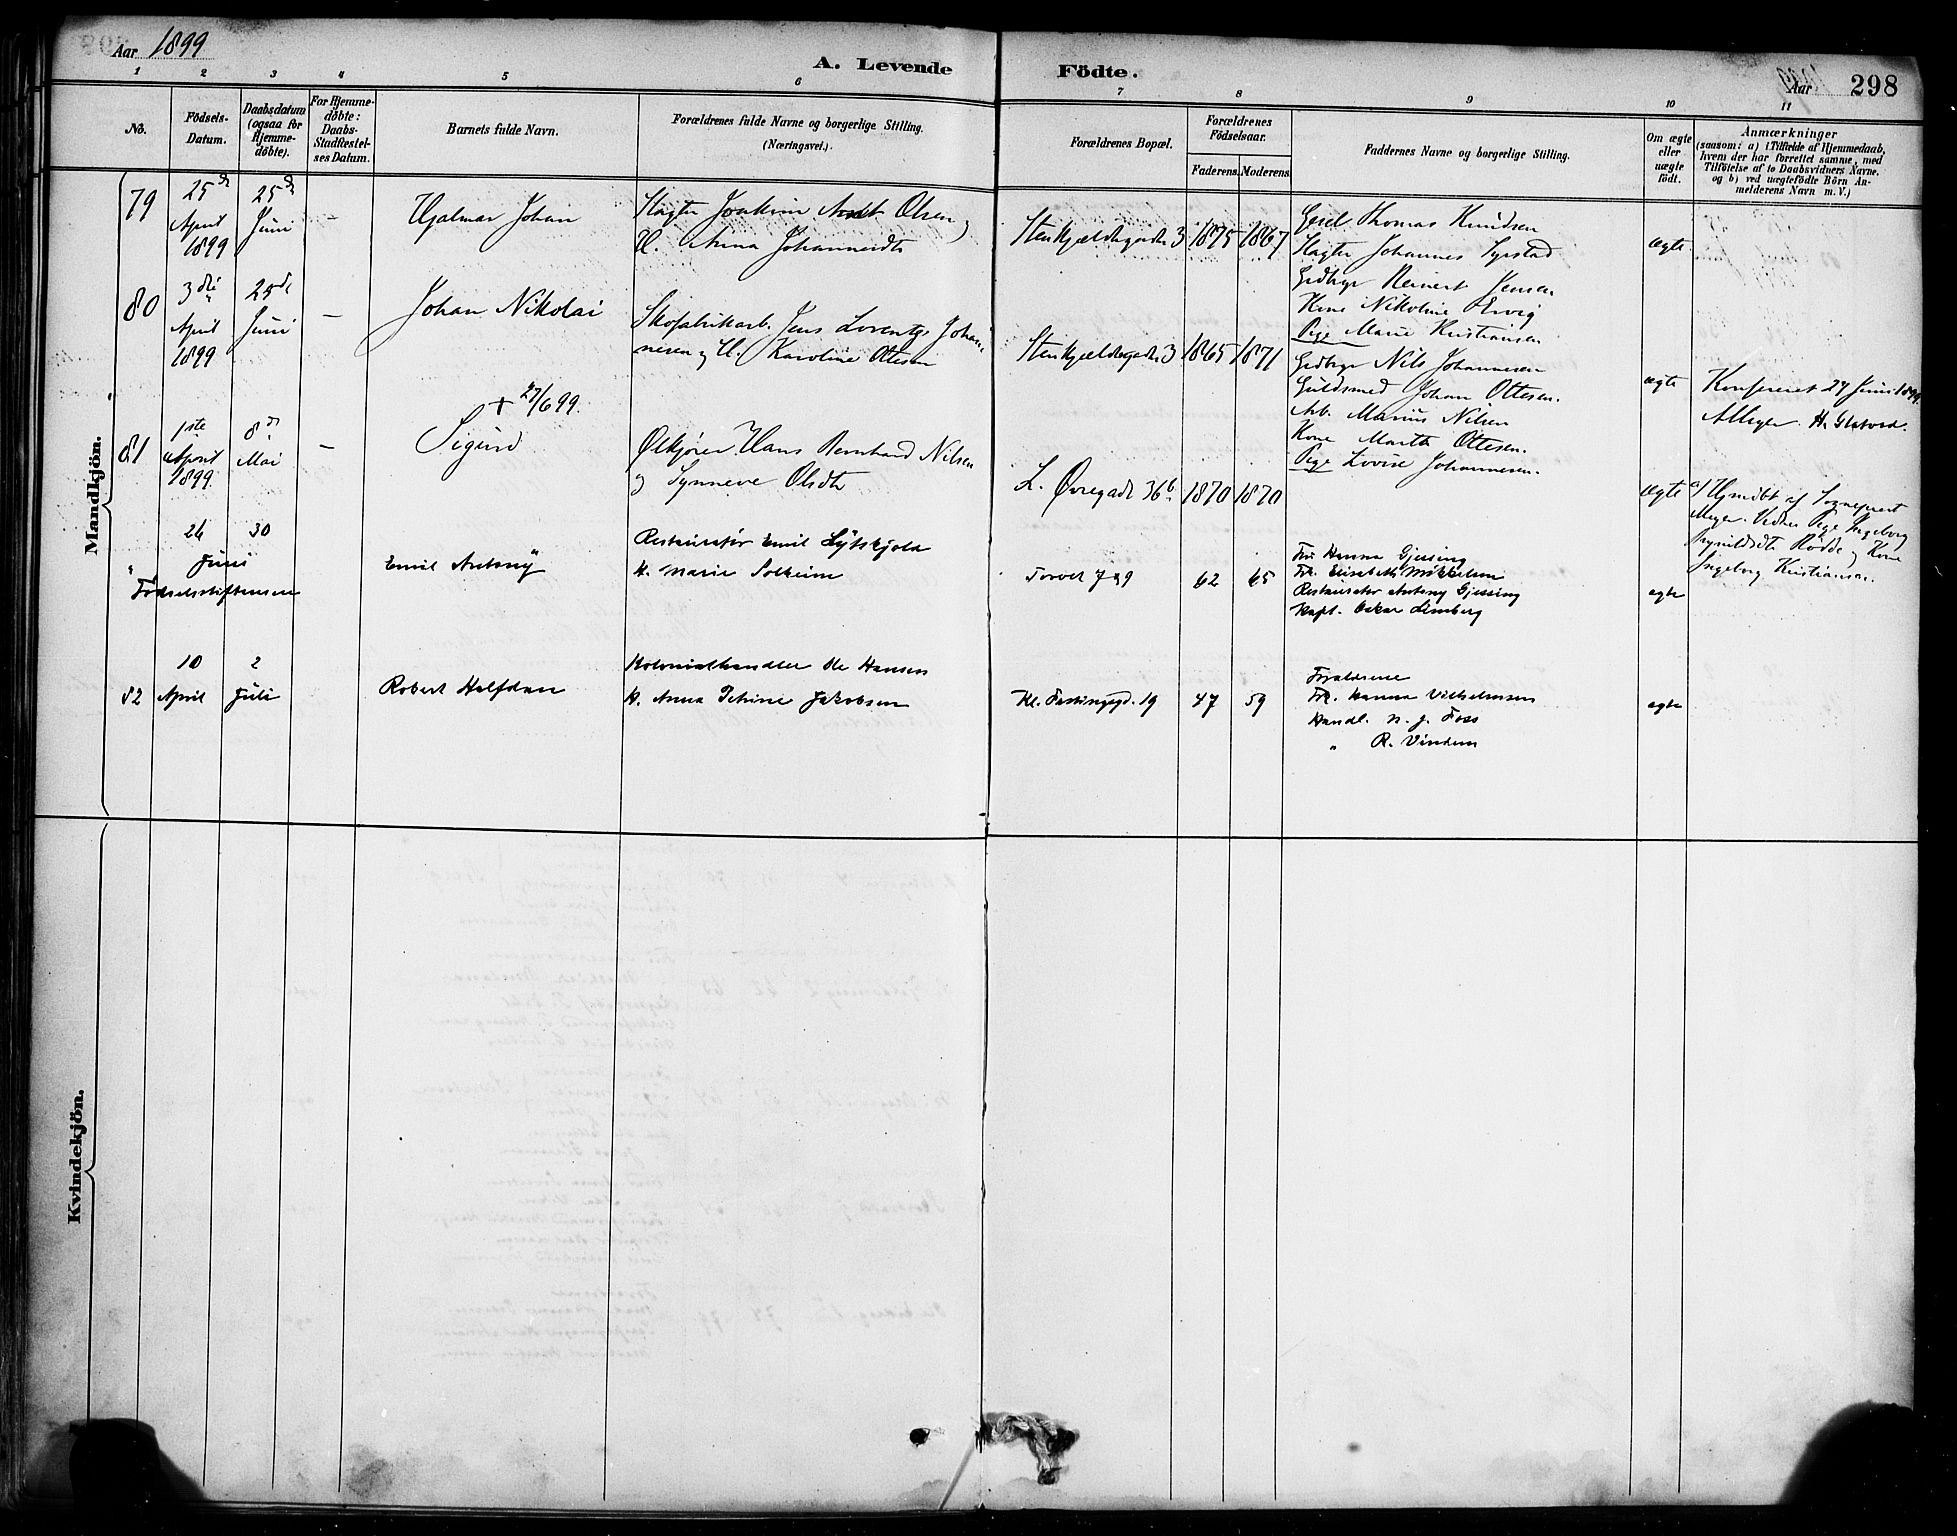 Aar 1899
A. Levende Födte.
Aar
298
1 2 3 4 5 6 7 8 9 10 11
No.
Födsels-Datum.
Daabsdatum (ogsaa for Hjemme-döbte).
For Hjemme-döbte: Daabs-Stadfæstel-ses Datum.
Barnets fulde Navn.
Forældrenes fulde Navne og borgerlige Stilling.
(Næringsvei.)
Forældrenes Bopæl.
Forældrenes Födselsaar.
Faderens. Moderens.
Faddernes Navne og borgerlige Stilling.
Om ægte eller uægte födt.
Anmærkninger
(saasom: a) i Tilfælde af Hjemmedaab,
hvem der har forrettet samme, med
Tilföielse af to Daabsvidners Navne,
og b) ved uægtefödte Börn An-
melderens Navn m. V.)
Mandkjön.
79
25de April 1899
25de Juni
-
Hjalmar Johan
Slagter Joakim Olsen
H. Anna Johannesdtr
Stenkjældergaden 3
1875 1867
Thomas Knudsen
Slagter Johannes Syrstad
Gedbyr Reinert Jensen
Kone Nikoline Ervig
Pige Marie Kristiansen
ægte
80
3die April 1899
25de Juni
-
Johan Nikolai
Skofabrikarb. Jens Lorentz Johan-
nesen og H. Karoline Ottesen
Stenkjældergaden 3
1865 1871
Nils Johannesen
Guldsmed Johan Ottesen.
Arb. Marius Nilsen
Kone Martha Ottesen.
Pige Lovise Johannesen.
ægte
Konfereret 27 Juni 1899.
81
1ste April 1899
8de Mai
-
+ 27/6 99.
Sigurd
Ølkjører Hans Bernhard Nilsen
og Synneve Olsdtr
L. Øvregade 36b
1870 1870
ægte
a) Hjmdbt af Sogneprest
Meyer. Vidner Pige Ingeborg
Rødde og Kone
Ingeborg Kristiansen.
"
26 Juni 30
Fødselsstiftelsen
Emil Antony
Restauratør Emil Lÿtskjold
H. Marie Solheim
Torvet 7 & 9
62 65
Fru Hanna Gjessing
Frk. Elisabeth Mikkelsen
Restauratør Antony Gjessing
Kapt. Oskar Limberg
egte
82
10 April
2 Juli
Robert Halfdan
Kolonialhandler Ole Hansen
H. Anna Petrine Jakobsen
Kl. Fastingsgd. 19
47 59
Forældrene
Frk. Hanna Vilhelmsen
Handl. N. J. Foss
" R. Vindum
egte
Kvindekjön.